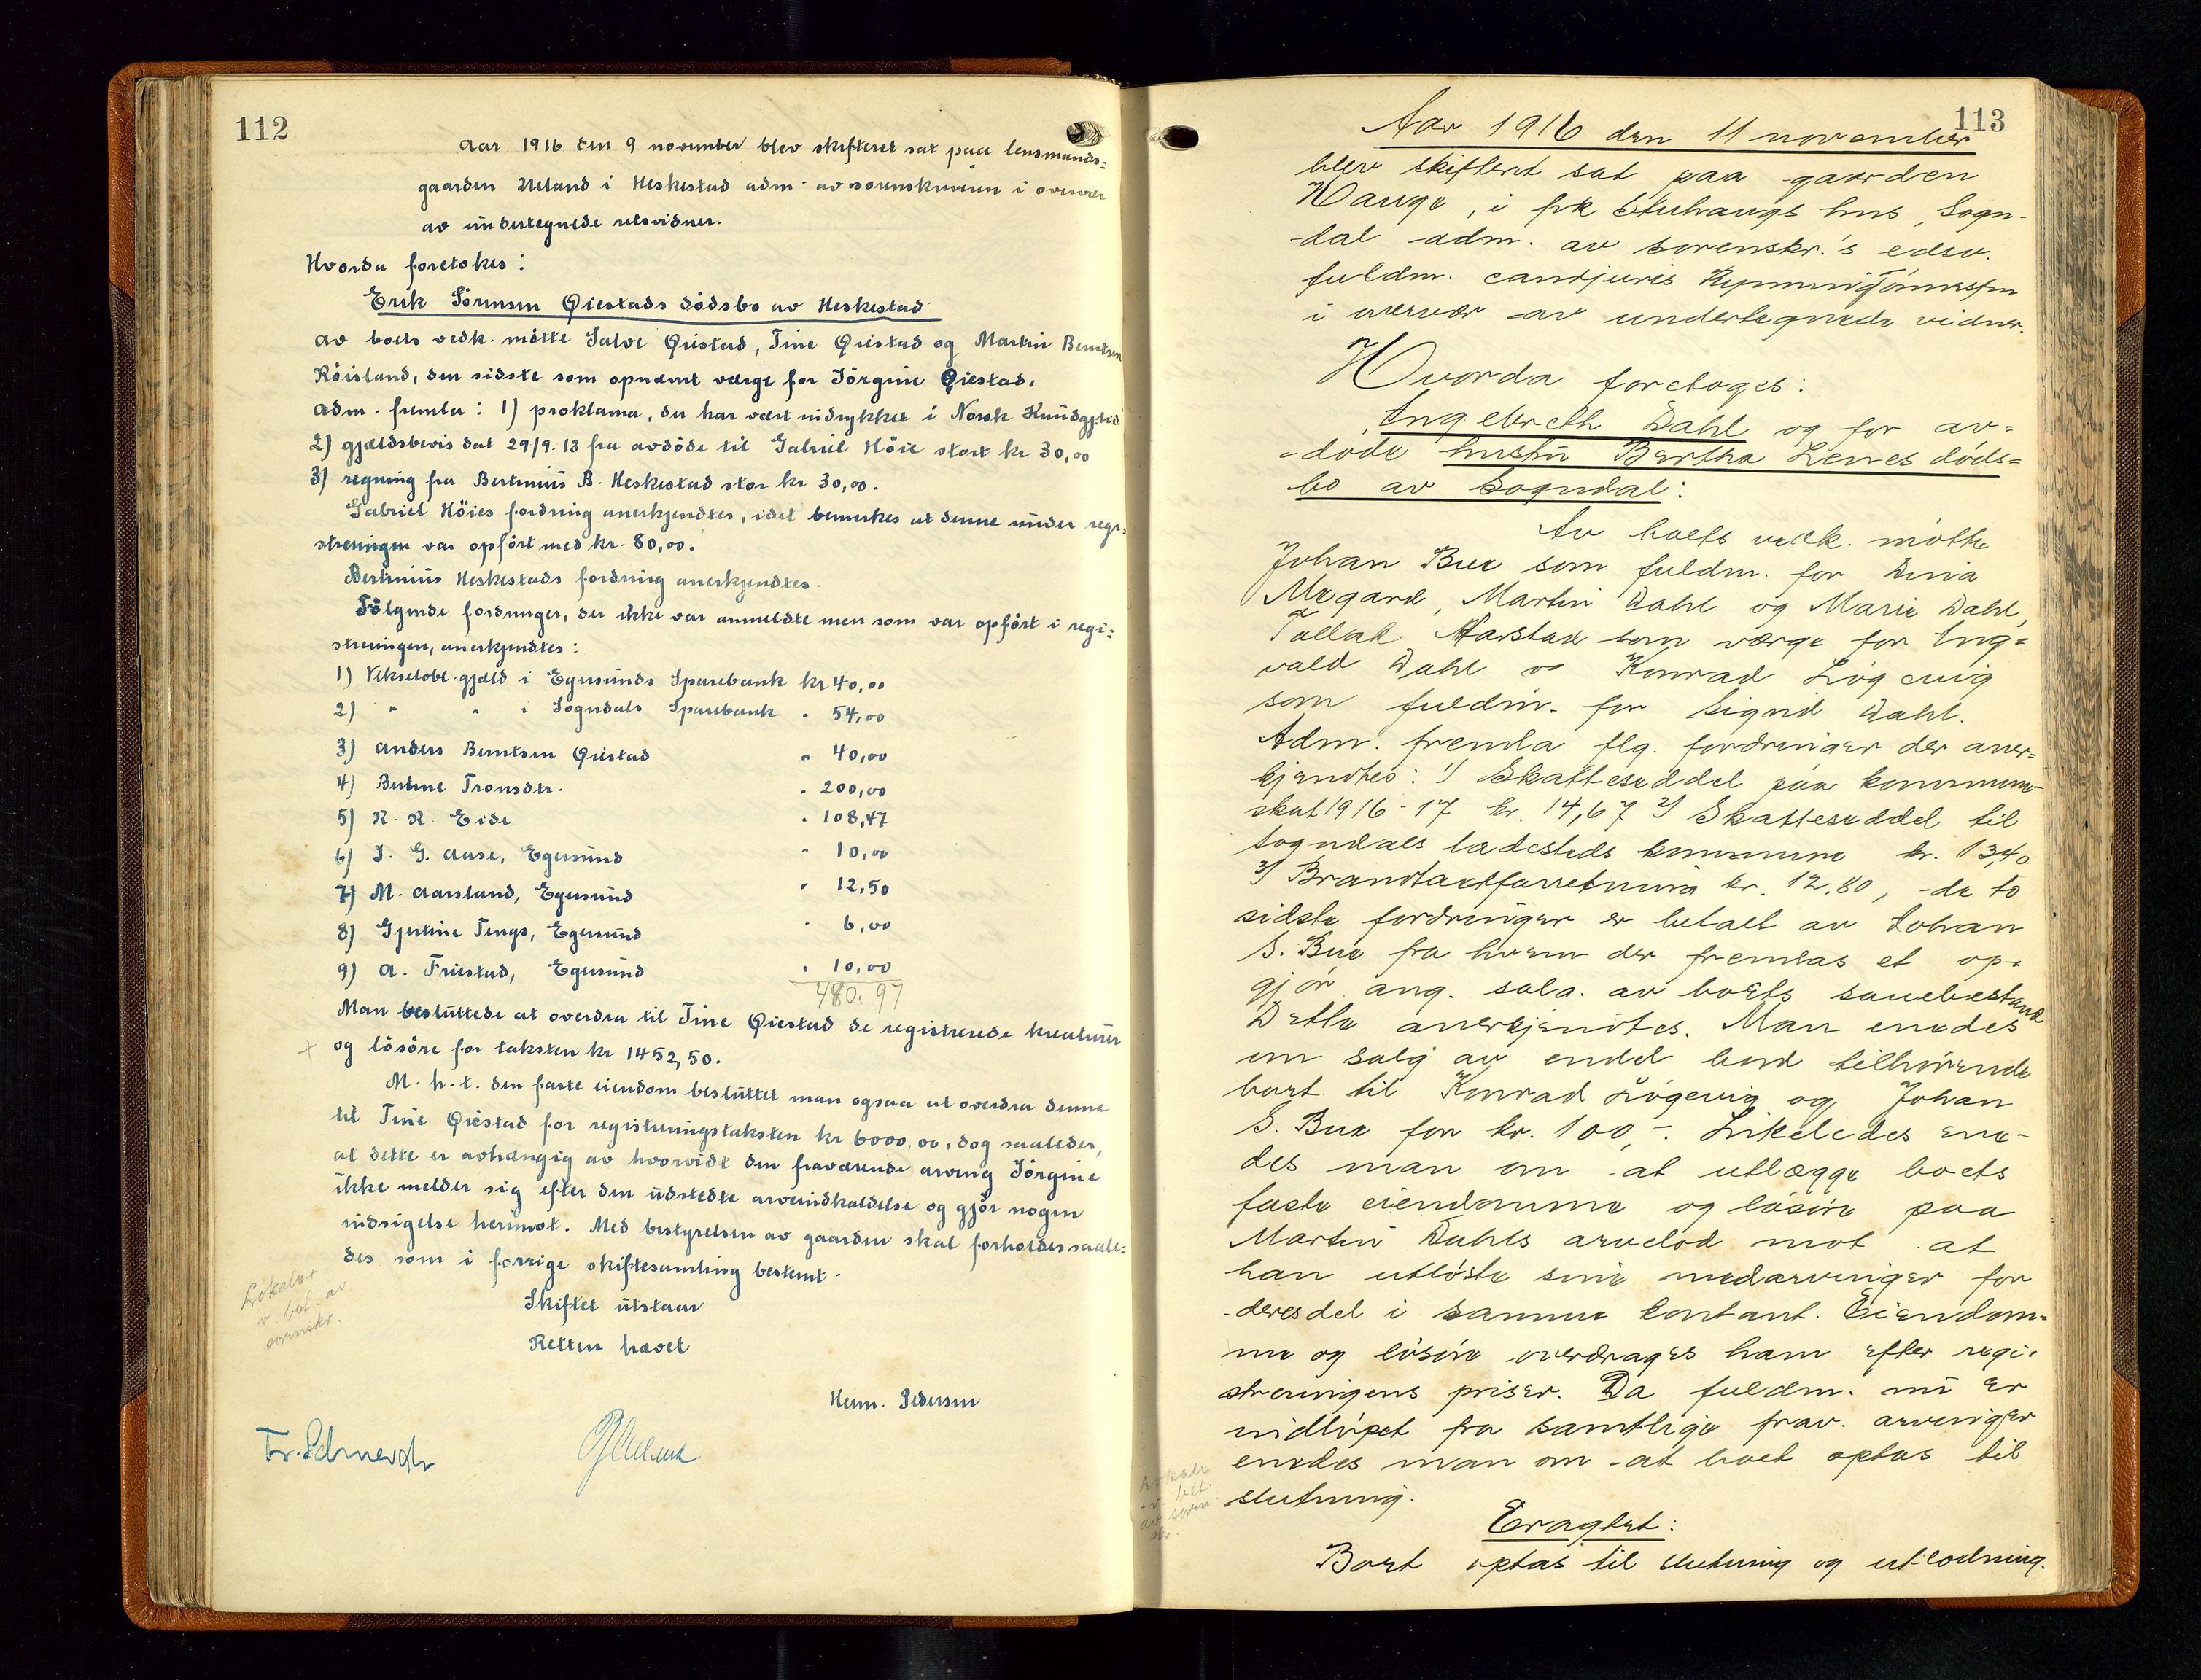 112
Aar 1916 den 9 november blev skifteret sat paa lensmands-
gaarden Ueland i Heskestad adm. av sorenskriveren i overvær
av undertegnede retsvidner.
Hvorda foretokes:
Erik Sörensen Qiestads dödsbo av Heskestad
av boets vedk. mötte Salve Qiestad, Tine Qiestad og Martin Berntsen
Röisland, den sidste som opnævnt værge for Jörgine Qiestad.
Adm. fremla: 1) proklama, der har vært indrykket i Norsk Kundgj.tid.
2) gjældsbevis dat 29/9. 13 fra avdöde til Gabriel Höie stort kr 30,00
3) regning fra Bertinius B. Heskestad stor kr 30,00.
Gabriel Höies fordring anerkjendtes, idet bemerkes at denne under regi-
streringen var opfört med kr. 80,00.
Bertinius Heskestads fordring anerkjendtes.
Fölgende fordringer, der ikke var anmeldte men som var opfört i regi-
streringen, anerkjendtes:
1) Vekselobl.gjæld i Egersunds Sparebank kr 40,00
2) " " i Sogndals Sparebank " 54,00
3) Anders Berntsen Qiestad " 40,00
4) Bertine Tronsdtr. " 200,00
5) R. R. Eide " 108,47
6) J. G. Aase, Egersund " 10,00
7) M. Aarsland, Egersund " 12,50
8) Gjertine Tengs, Egersund " 6,00
9) A. Friestad, Egersund " 10,00
480.97
Man besluttede at overdra til Tine Qiestad de registrerede kreaturer
+ og lösöre for taksten kr 1452,50.
M. h. t. den faste eiendom besluttet man ogsaa at overdra denne
til Tine Qiestad for registreringstaksten kr 6000,00, dog saaledes,
at dette er avhængig av hvorvidt den fraværende arving Jörgine
ikke melder sig efter den udstedte arveindkaldelse og gjör nogen
indsigelse herimot. Med bestyrelsen av gaarden skal forholdes saale-
des som i forrige skiftesamling bestemt.
Skiftet utstaar
Retten hævet
Lokalet
v. bet. av
sorenskr.
Herm. Pedersen
Fr. Schmerch
113
Aar 1916 den 11 november
blev skifteret sat paa gaarden
Hauge, i frk Stuhaugs hus, Sogn-
dal adm. av sorenskr.'s edsv.
fuldm. cand juris Henning Tönnessen
i overvær av undertegnede vidner.
Hvorda foretoges:
Ingebreth Dahl og for av-
döde hustru Bertha Lenes döds-
bo av Sogndal:
Av boets vedk. mötte
Johan Bue som fuldm. for Enia
Mægard, Martin Dahl og Marie Dahl,
Tollak Aarstad som værge for Ing-
vald Dahl og Konrad Lögevig
som fuldm. for Sigrid Dahl.
Adm. fremla flg. fordringer der aner-
kjendtes: 1) Skatteseddel paa kommune-
skat 1916-17 kr. 14,67 2) Skatteseddel til
Sogndals ladesteds kommune kr. 13,40
3) Brandtaxtforretning kr. 12.80, de to
sidste fordringer er betalt av Johan
S. Bue fra hvem der fremlas et op-
gjör ang. salg av boets sauebestand
Dette anerkjendtes. Man enedes
om salg av endel bord tilhörende
boet til Konrad Lögevig og Johan
S. Bue for kr. 100,-. Likeledes ene-
des man om at utlægge boets
faste eiendomme og lösöre paa
Martin Dahls arvelod mot at
han utlöste sine medarvinger for
deres del i samme kontant. Eiendom-
me og lösöre overdrages ham efter regi-
streringens priser. Da fuldm. nu er
indlöpet fra samtlige frav. arvinger
enedes man om at boet optas til
slutning.
Eragtet:
Boet optas til slutning og utlodning.
Lokale
+ v. bet.
av soren-
skr.